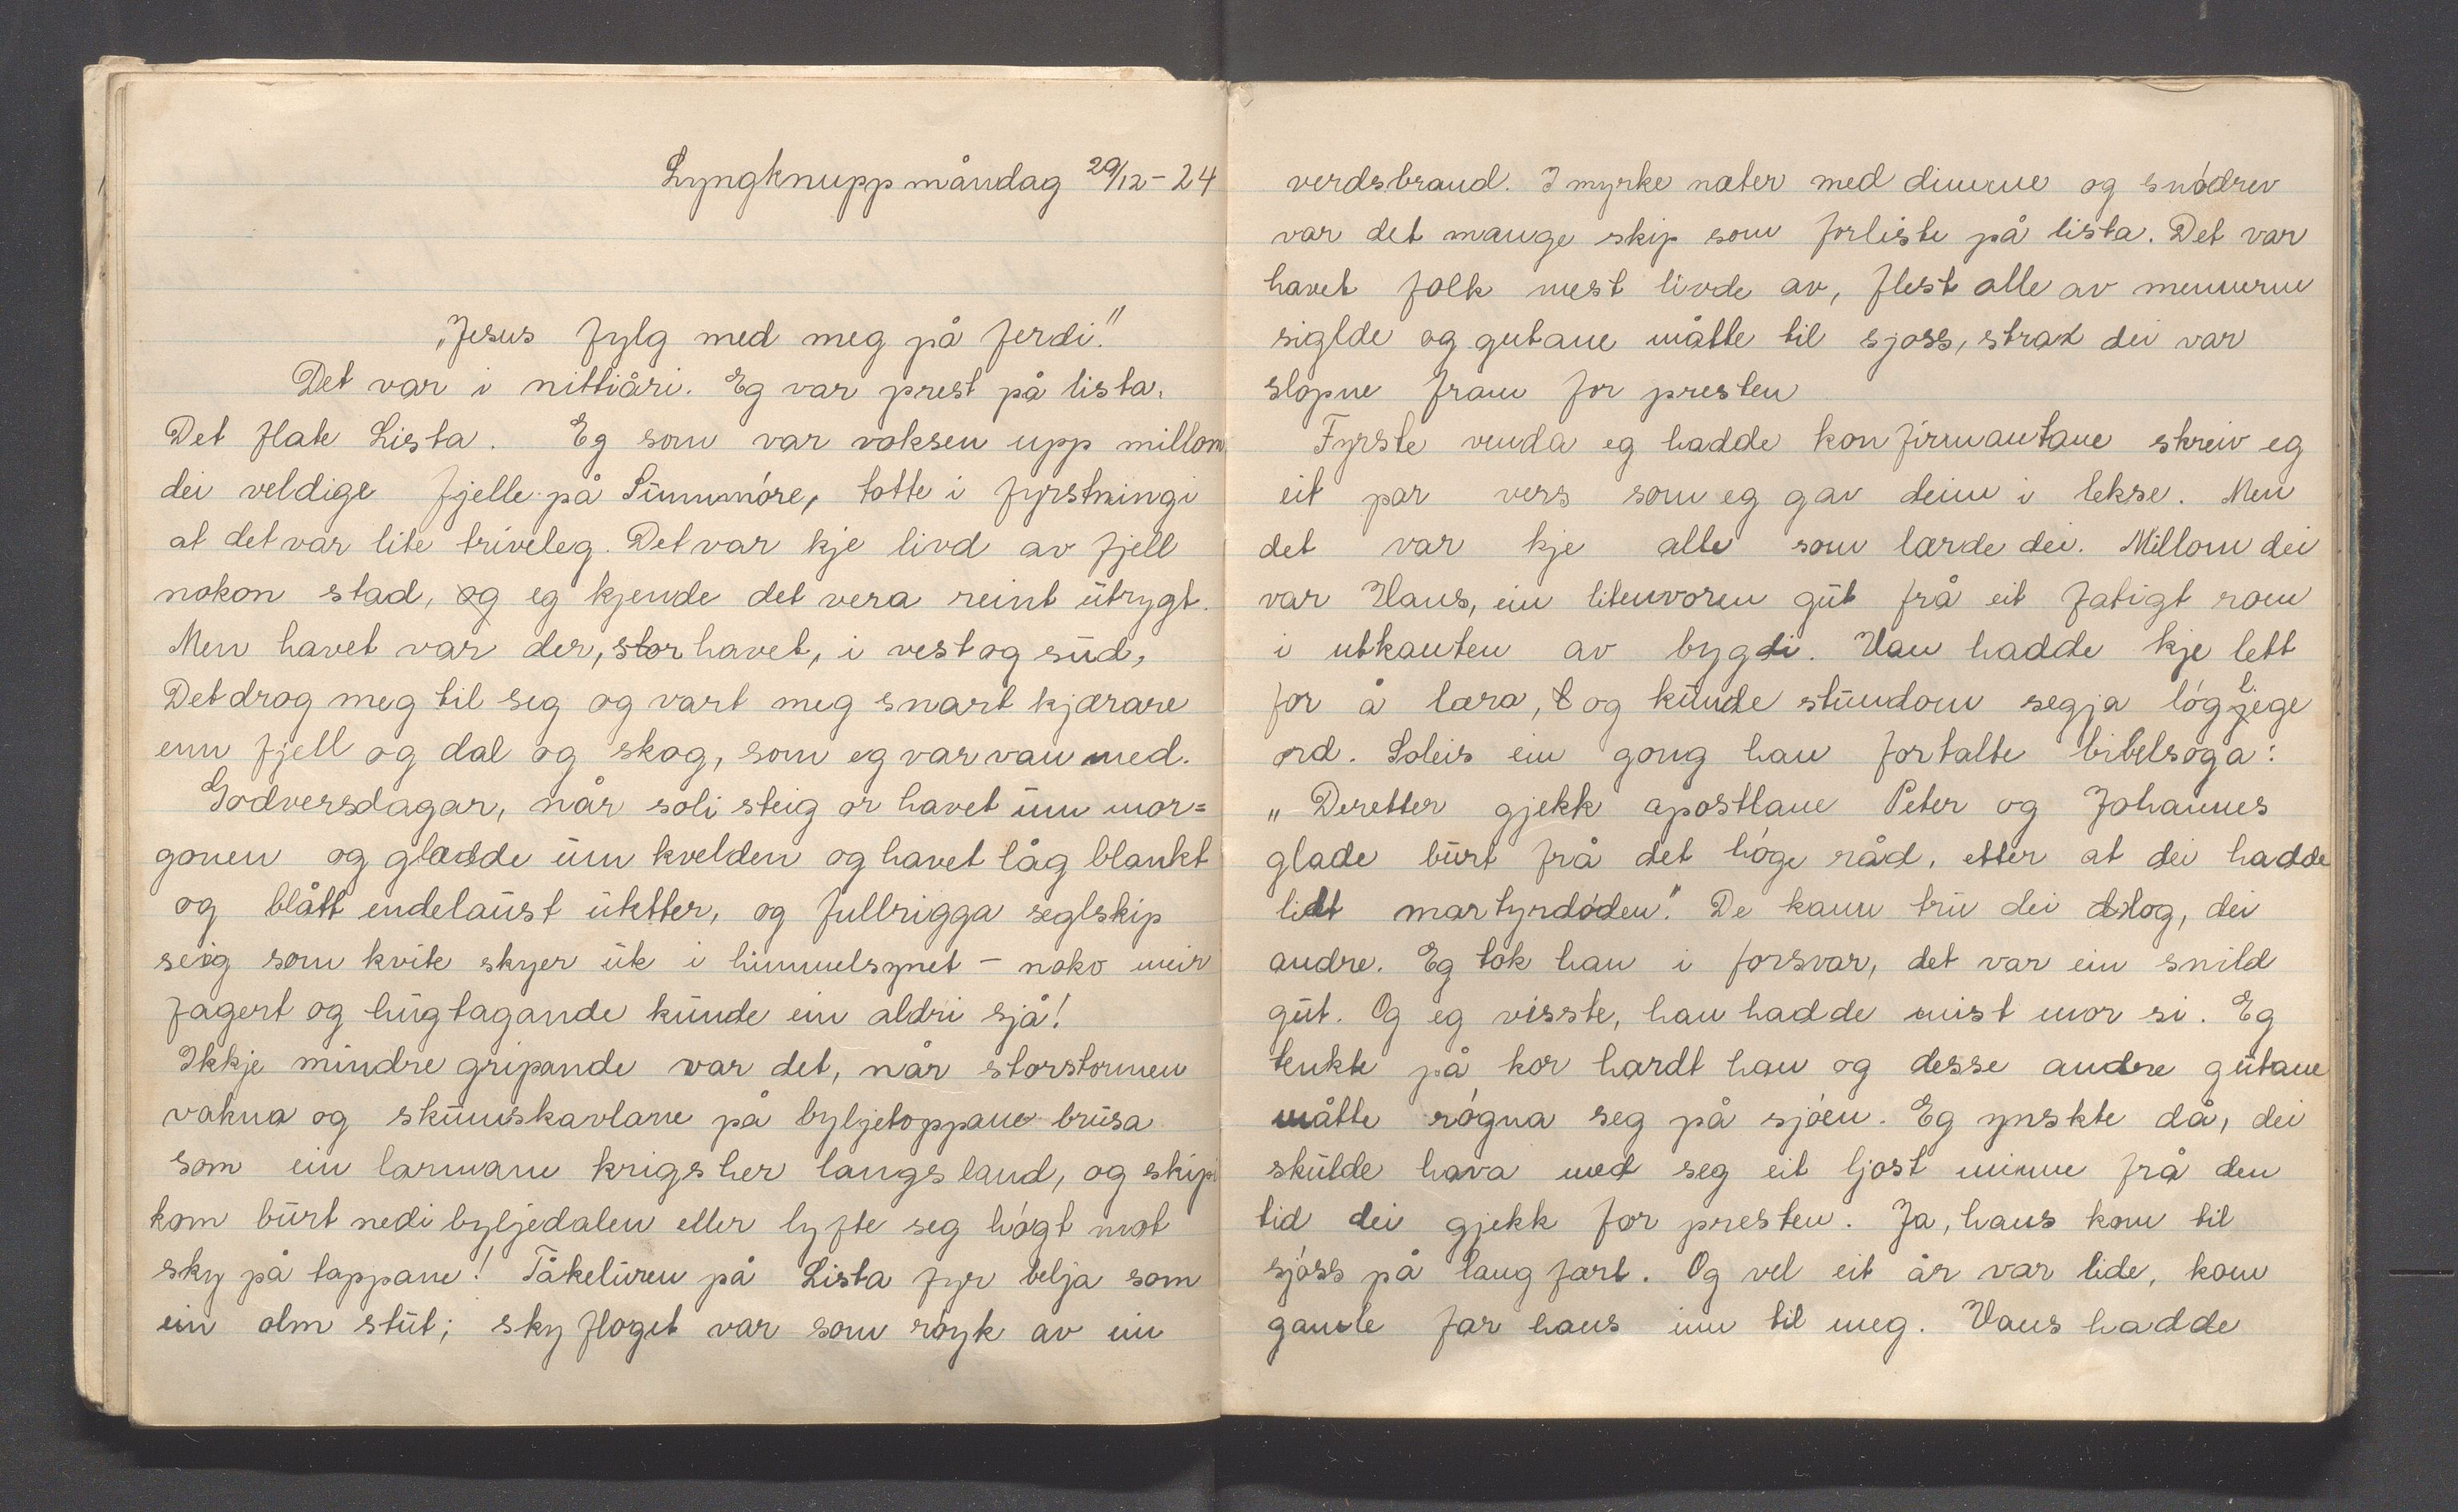 Lyngknupp måndag 29/12-24
"Jesus fylg med meg på ferdi."
Det var i nittiåri. Eg var prest på lista.
Det flate Lista. Eg som var voksen upp millom
dei veldige fjelle på Sunnmóre, totte i fyrstningi
at det var lite triveleg. Det var kje livd av fjell
nokon stad, og eg kjende det vera reint utrygt.
Men havet var der, storhavet, i vest og sud,
Det drog meg til seg og vart meg snart kjærare
enn fjell og dal og skog, som eg var van med.
Godversdagar, når soli steig or havet um mor=
gonen og glædde um kvelden og havet låg blankt
og blått endelaust utetter, og fullrigga seglskip
seig som kvite skyer ut i himmelsynet - noko meir
fagert og hugtagande kunde ein aldri sjå!
Ikkje mindre gripande var det, når storstormen
vakna og skumskavlane på byljetoppane brusa
som ein larmane krigsher langs land, og skipi
kom burt nedi byljedalen eller lyfte seg hógt mot
sky på tappane! Tåkeluren på Lista fyr belja som
ein olm stut; skyfloget var som róyk av ein
verdsbrand. I myrke næter med dimme og snódrev
var det mange skip som forliste på lista. Det var
havet folk mest livde av, flest alle av mennerne
siglde og gutane måtte til sjøss, strax dei var
slopne fram for presten
Fyrste venda eg hadde konfirmantane skreiv eg
eit par vers som eg gav deim i lekse. Men
det var kje alle som lærde dei. Millom dei
var Hans, ein litenvoren gut frå eit fatigt rom
i utkanten av bygdi. Han hadde kje lett
for å læra, og kunde stundom segja lóglege
ord. Soleis ein gong han fortalte bibelsoga:
"Deretter gjekk apostlane Peter og Johannes
glade burt frå det hóge råd, etter at dei hadde
lidt martyrdóden." De kann tru dei log, dei
andre. Eg tok han i forsvar, det var ein snild
gut. Og eg visste, han hadde mist mor si. Eg
tenkte på kor hardt han og desse andre gutane
måtte rógna seg på sjóen. Eg ynskte då, dei
skulde hava med seg eit ljost minne frå den
tid dei gjekk for presten. Ja, hans kom til
sjóss på langfart. Og vel eit år var lide, kom
gamle far hans inn til meg. Hans hadde